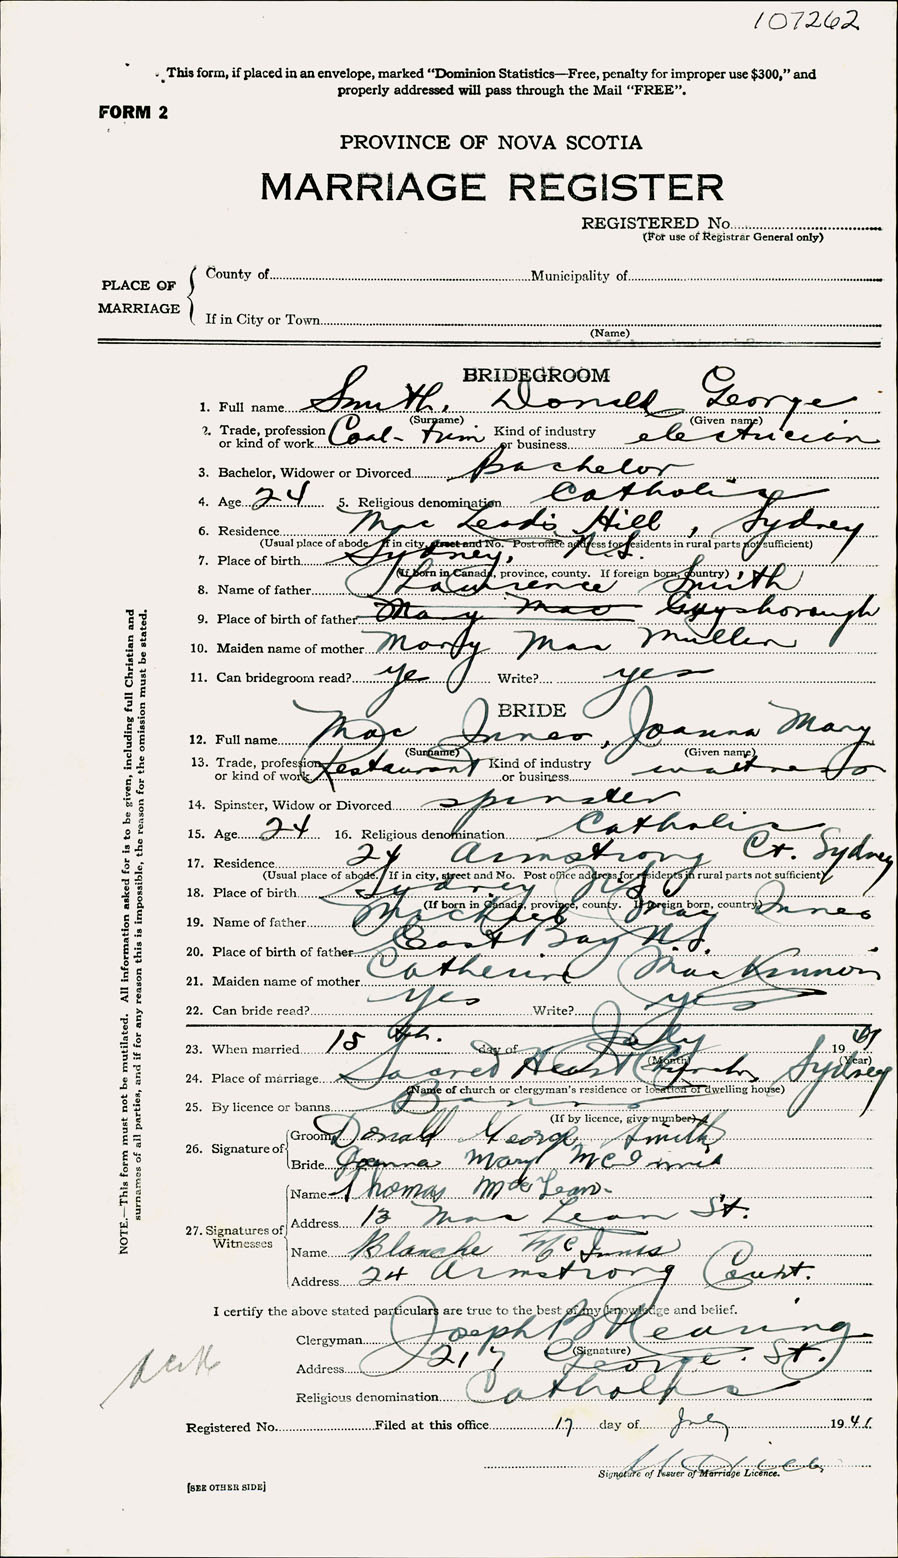 107262
This form, if placed in an envelope, marked “Dominion Statistics—Free, penalty for improper use $300,” and
properly addressed will pass through the Mail “FREE”.
FORM 2
PROVINCE OF NOVA SCOTIA
MARRIAGE REGISTER
REGISTERED No.
(For use of Registrar General only)
PLACE OF MARRIAGE
County of Municipality of
If in City or Town
(Name)
BRIDEGROOM
1. Full name Smith, Donald George
(Surname) (Given name)
2. Trade, profession or kind of work Coal-Trim Kind of industry or business electrician
3. Bachelor, Widower or Divorced Bachelor
4. Age 24 5. Religious denomination Catholic
6. Residence Mac Leods Hill, Sydney
(Usual place of abode. If in city, street and No. Post office address for residents in rural parts not sufficient)
7. Place of birth Sydney, N.S.
(If born in Canada, province, county. If foreign born, country)
8. Name of father Lawrence Smith
9. Place of birth of father Mary Mac Guysborough
10. Maiden name of mother Mary Mac Mullen
11. Can bridegroom read? yes Write? yes
BRIDE
12. Full name Mac Innes, Joanna Mary
(Surname) (Given name)
13. Trade, profession or kind of work Restaurant Kind of industry or business waitress
14. Spinster, Widow or Divorced spinster
15. Age 24 16. Religious denomination Catholic
17. Residence 24 Armstrong Ct. Sydney
(Usual place of abode. If in city, street and No. Post office address for residents in rural parts not sufficient)
18. Place of birth Sydney N.S.
(If born in Canada, province, county. If foreign born, country)
19. Name of father Michael Mac Innes
20. Place of birth of father East Bay N.S.
21. Maiden name of mother Catherine MacKinnon
22. Can bride read? yes Write? yes
23. When married 15 th. day of July 19 41
(Month) (Year)
24. Place of marriage Sacred Heart Church, Sydney
(Name of church or clergyman's residence or location of dwelling house)
25. By licence or banns Banns
(If by licence, give number)
26. Signature of
Groom Donald George Smith
Bride Joanna Mary McInnis
27. Signatures of Witnesses
Name Thomas MacLean
Address 13 Mac Lean St.
Name Blanche McInnis
Address 24 Armstrong Court.
I certify the above stated particulars are true to the best of my knowledge and belief.
Clergyman Joseph B Kearing
(Signature)
Address 217 George St.
Religious denomination Catholic
Registered No. Filed at this office 17 day of July 1941
Signature of Issuer of Marriage Licence.
[SEE OTHER SIDE]
NOTE.—This form must not be mutilated. All information asked for is to be given, including full Christian and
surnames of all parties, and if for any reason this is impossible, the reason for the omission must be stated.